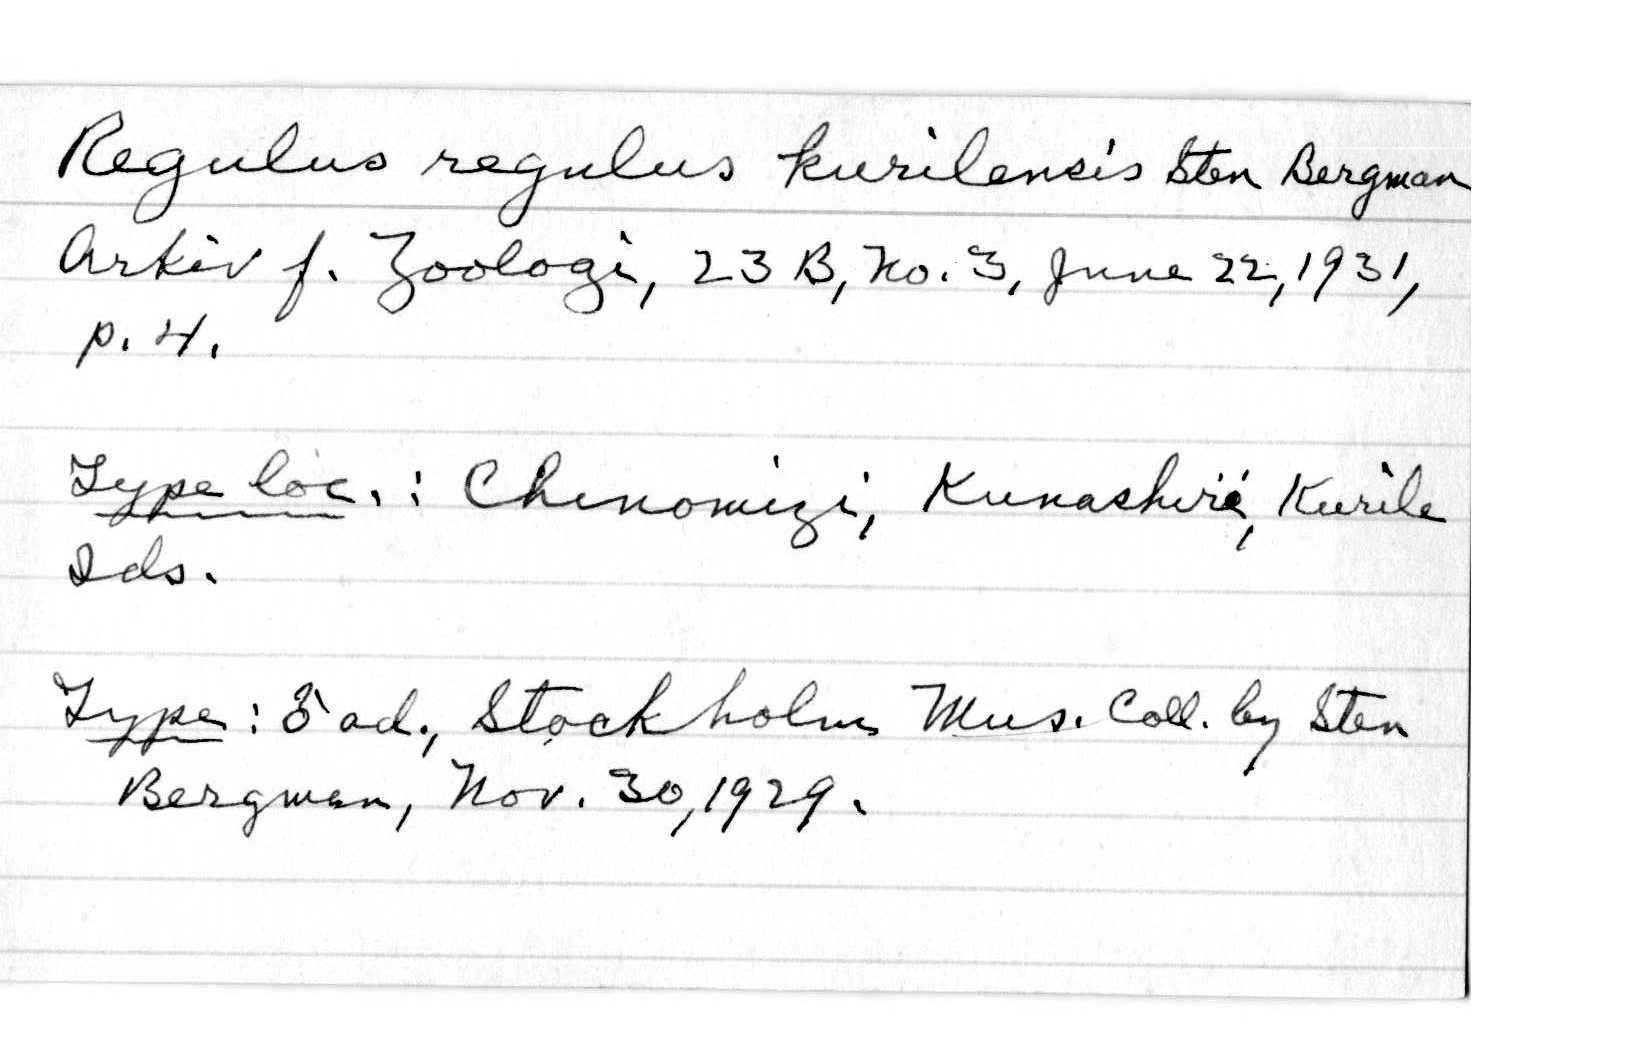 Regulus regulus kurilensis Sten Bergman
Arkiv f. Zoologi, 23 B, No. 3, June 22, 1931,
p. 4.
Type loc. : Chinomizi, Kunashiri, Kurile
Ids.
Type : ♂ ad., Stockholm Mus. Coll. by Sten
Bergman, Nov. 30, 1929.